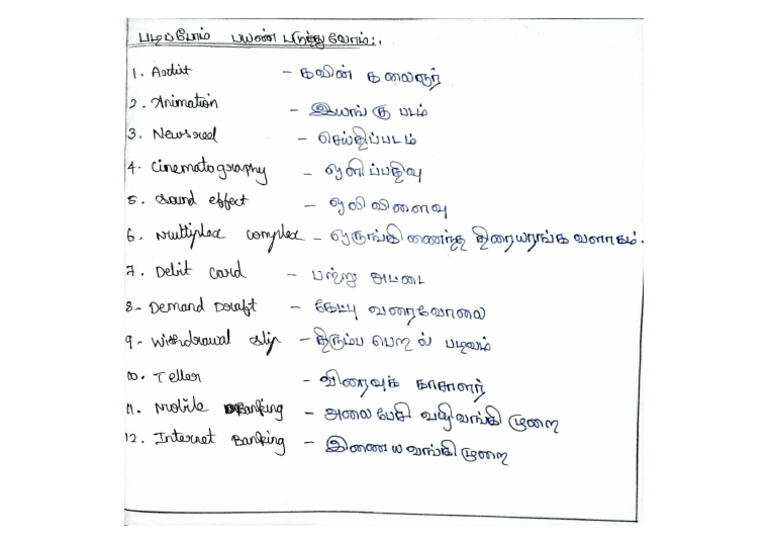 படிப்போம் பயண் படுத்துவோம்:.
1. Artist - கவின் கலைஞர்
2. Animation - இயங்கு படம்
3. Newsreel - செய்திப்படம்
4. Cinematography - ஒளிப்பதிவு
5. Sound effect - ஒலி விளைவு
6. Multiplex complex - ஒருங்கிணைந்த திரையரங்க வளாகம்.
7. Debit card - பற்று அட்டை
8- Demand Draft - கேட்பு வரைவோலை
9- Withdrawal slip - திரும்ப பெறல் படிவம்
10. Teller - விரைவுக் காசாளர்
11. Mobile Banking - அலைபேசி வழி வங்கி முறை
12. Internet Banking - இணைய வங்கி முறை